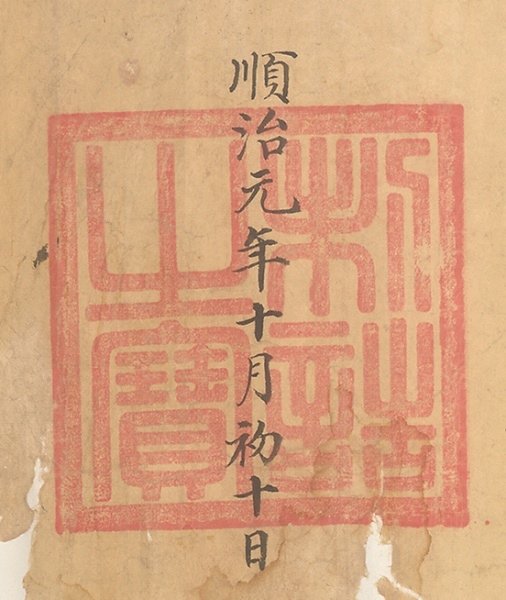 順治元年十月初十日
制誥
之寶